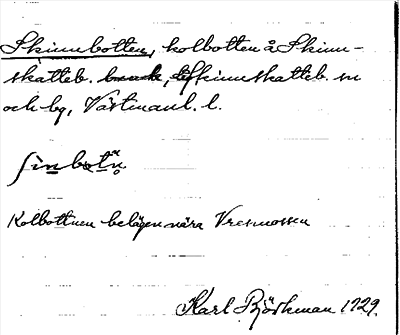 Skinnbotten, kolbotten å Skinn-
skatteb. Skinnskatteb. sn
och bg, Västmanl. l.
ʃìnbotn̥
Kolbottnen belägen nära Vresmossen
Karl Björkman 1929.